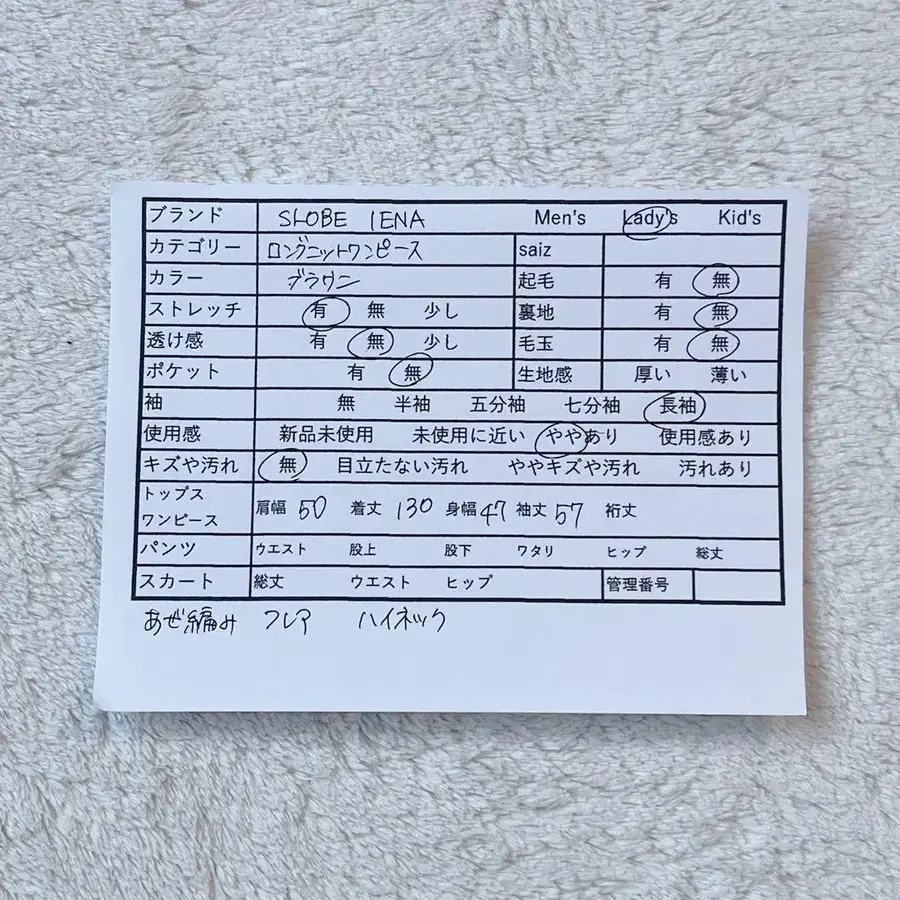 ブランド SLOBE IENA Men's Lady's Kid's
カテゴリー ロングニットワンピース saiz
カラー ブラウン 起毛 有 無
ストレッチ 有 無 少し 裏地 有 無
透け感 有 無 少し 毛玉 有 無
ポケット 有 無 生地感 厚い 薄い
袖 無 半袖 五分袖 七分袖 長袖
使用感 新品未使用 未使用に近い ややあり 使用感あり
キズや汚れ 無 目立たない汚れ ややキズや汚れ 汚れあり
トップス
ワンピース 肩幅 50 着丈 130 身幅 47 袖丈 57 裄丈
パンツ ウエスト 股上 股下 ワタリ ヒップ 総丈
スカート 総丈 ウエスト ヒップ 管理番号
あぜ編み フレア ハイネック